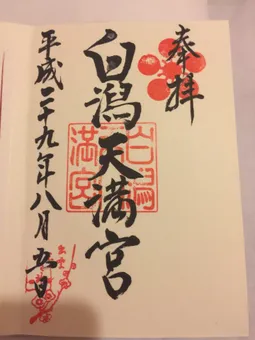 奉拝
白潟天満宮
平成二十九年八月五日
白潟
天
満宮